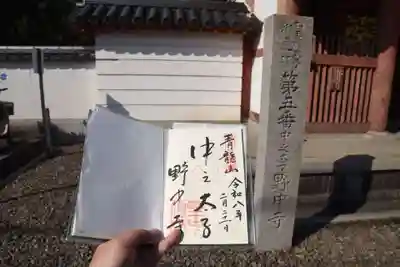 青龍山
令和八年
二月二十一日
中之太子
野中寺
第五番中之太子野中寺